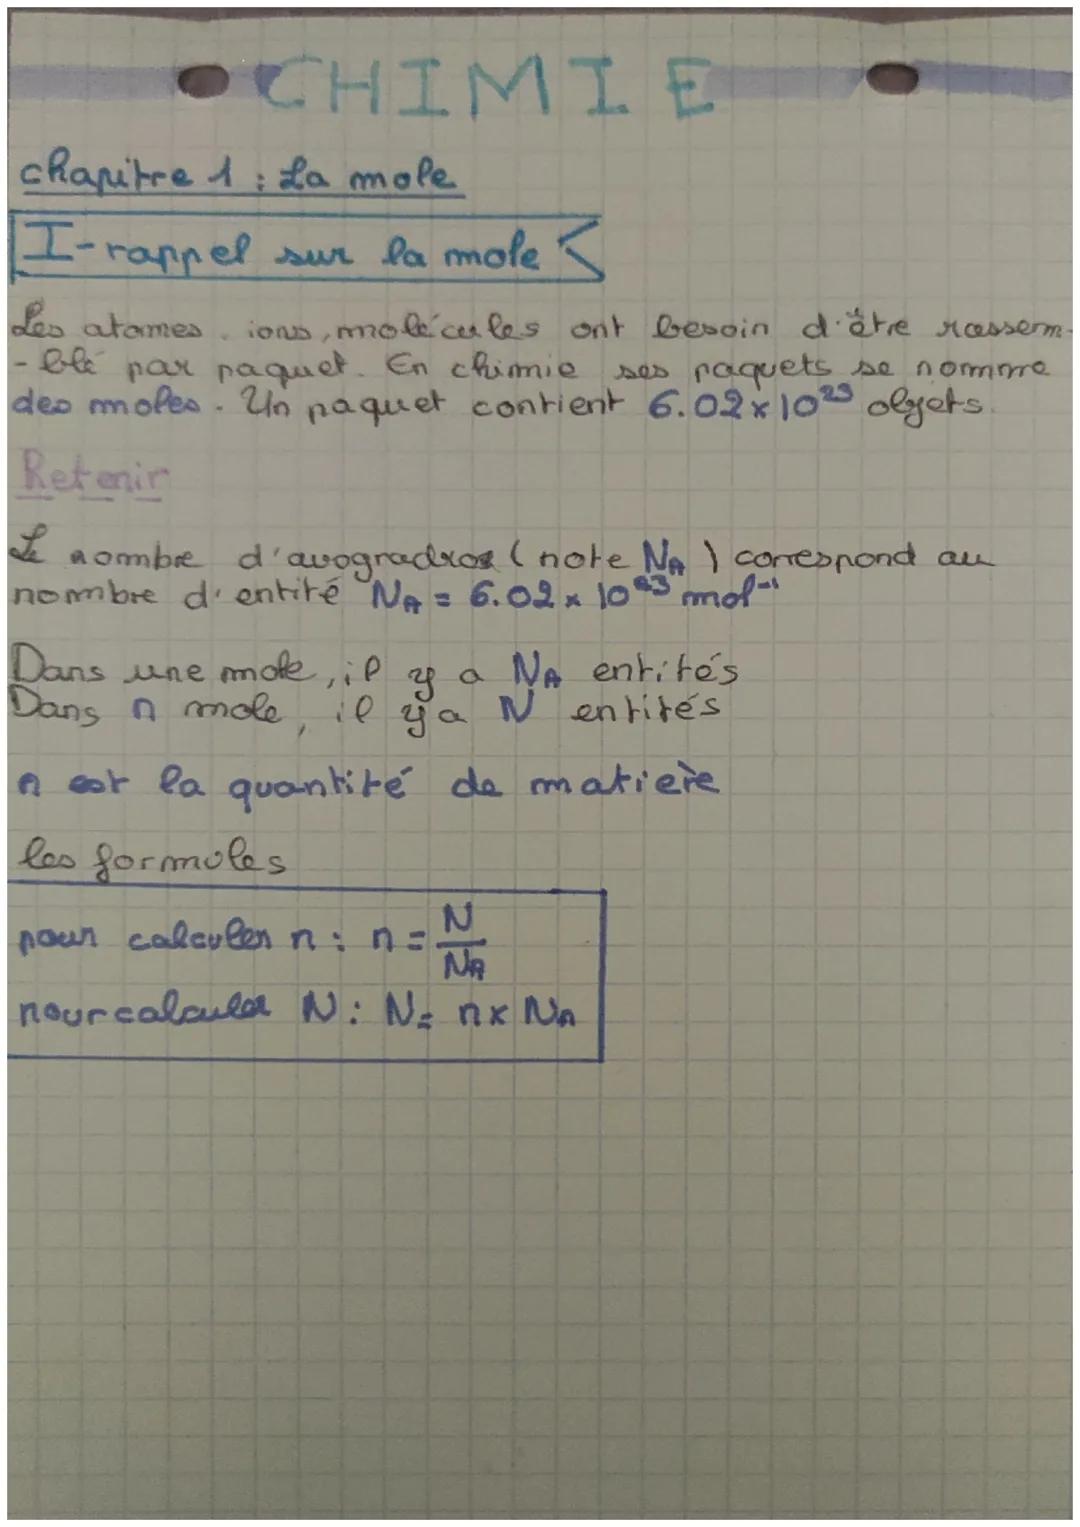 CHIMIE
chapitre 1 : La mole
I-rappel sur la mole
Les atomes, ions, molécules ont besoin d'être rassem-
-blé par paquet. En chimie ses paquets se nomme
des moles. Un paquet contient 6.02 x 10²³ objets.
Retenir
Le nombre d'avogradros (note NA) correspond au
nombre d'entité NA = 6.02 x 10²³ mol⁻¹
Dans une mole, il y a NA entités
Dans n mole, il y a N entités
n est la quantité de matière
les formules
pour calculer n : n = N/NA
pour calculer N : N = n x NA